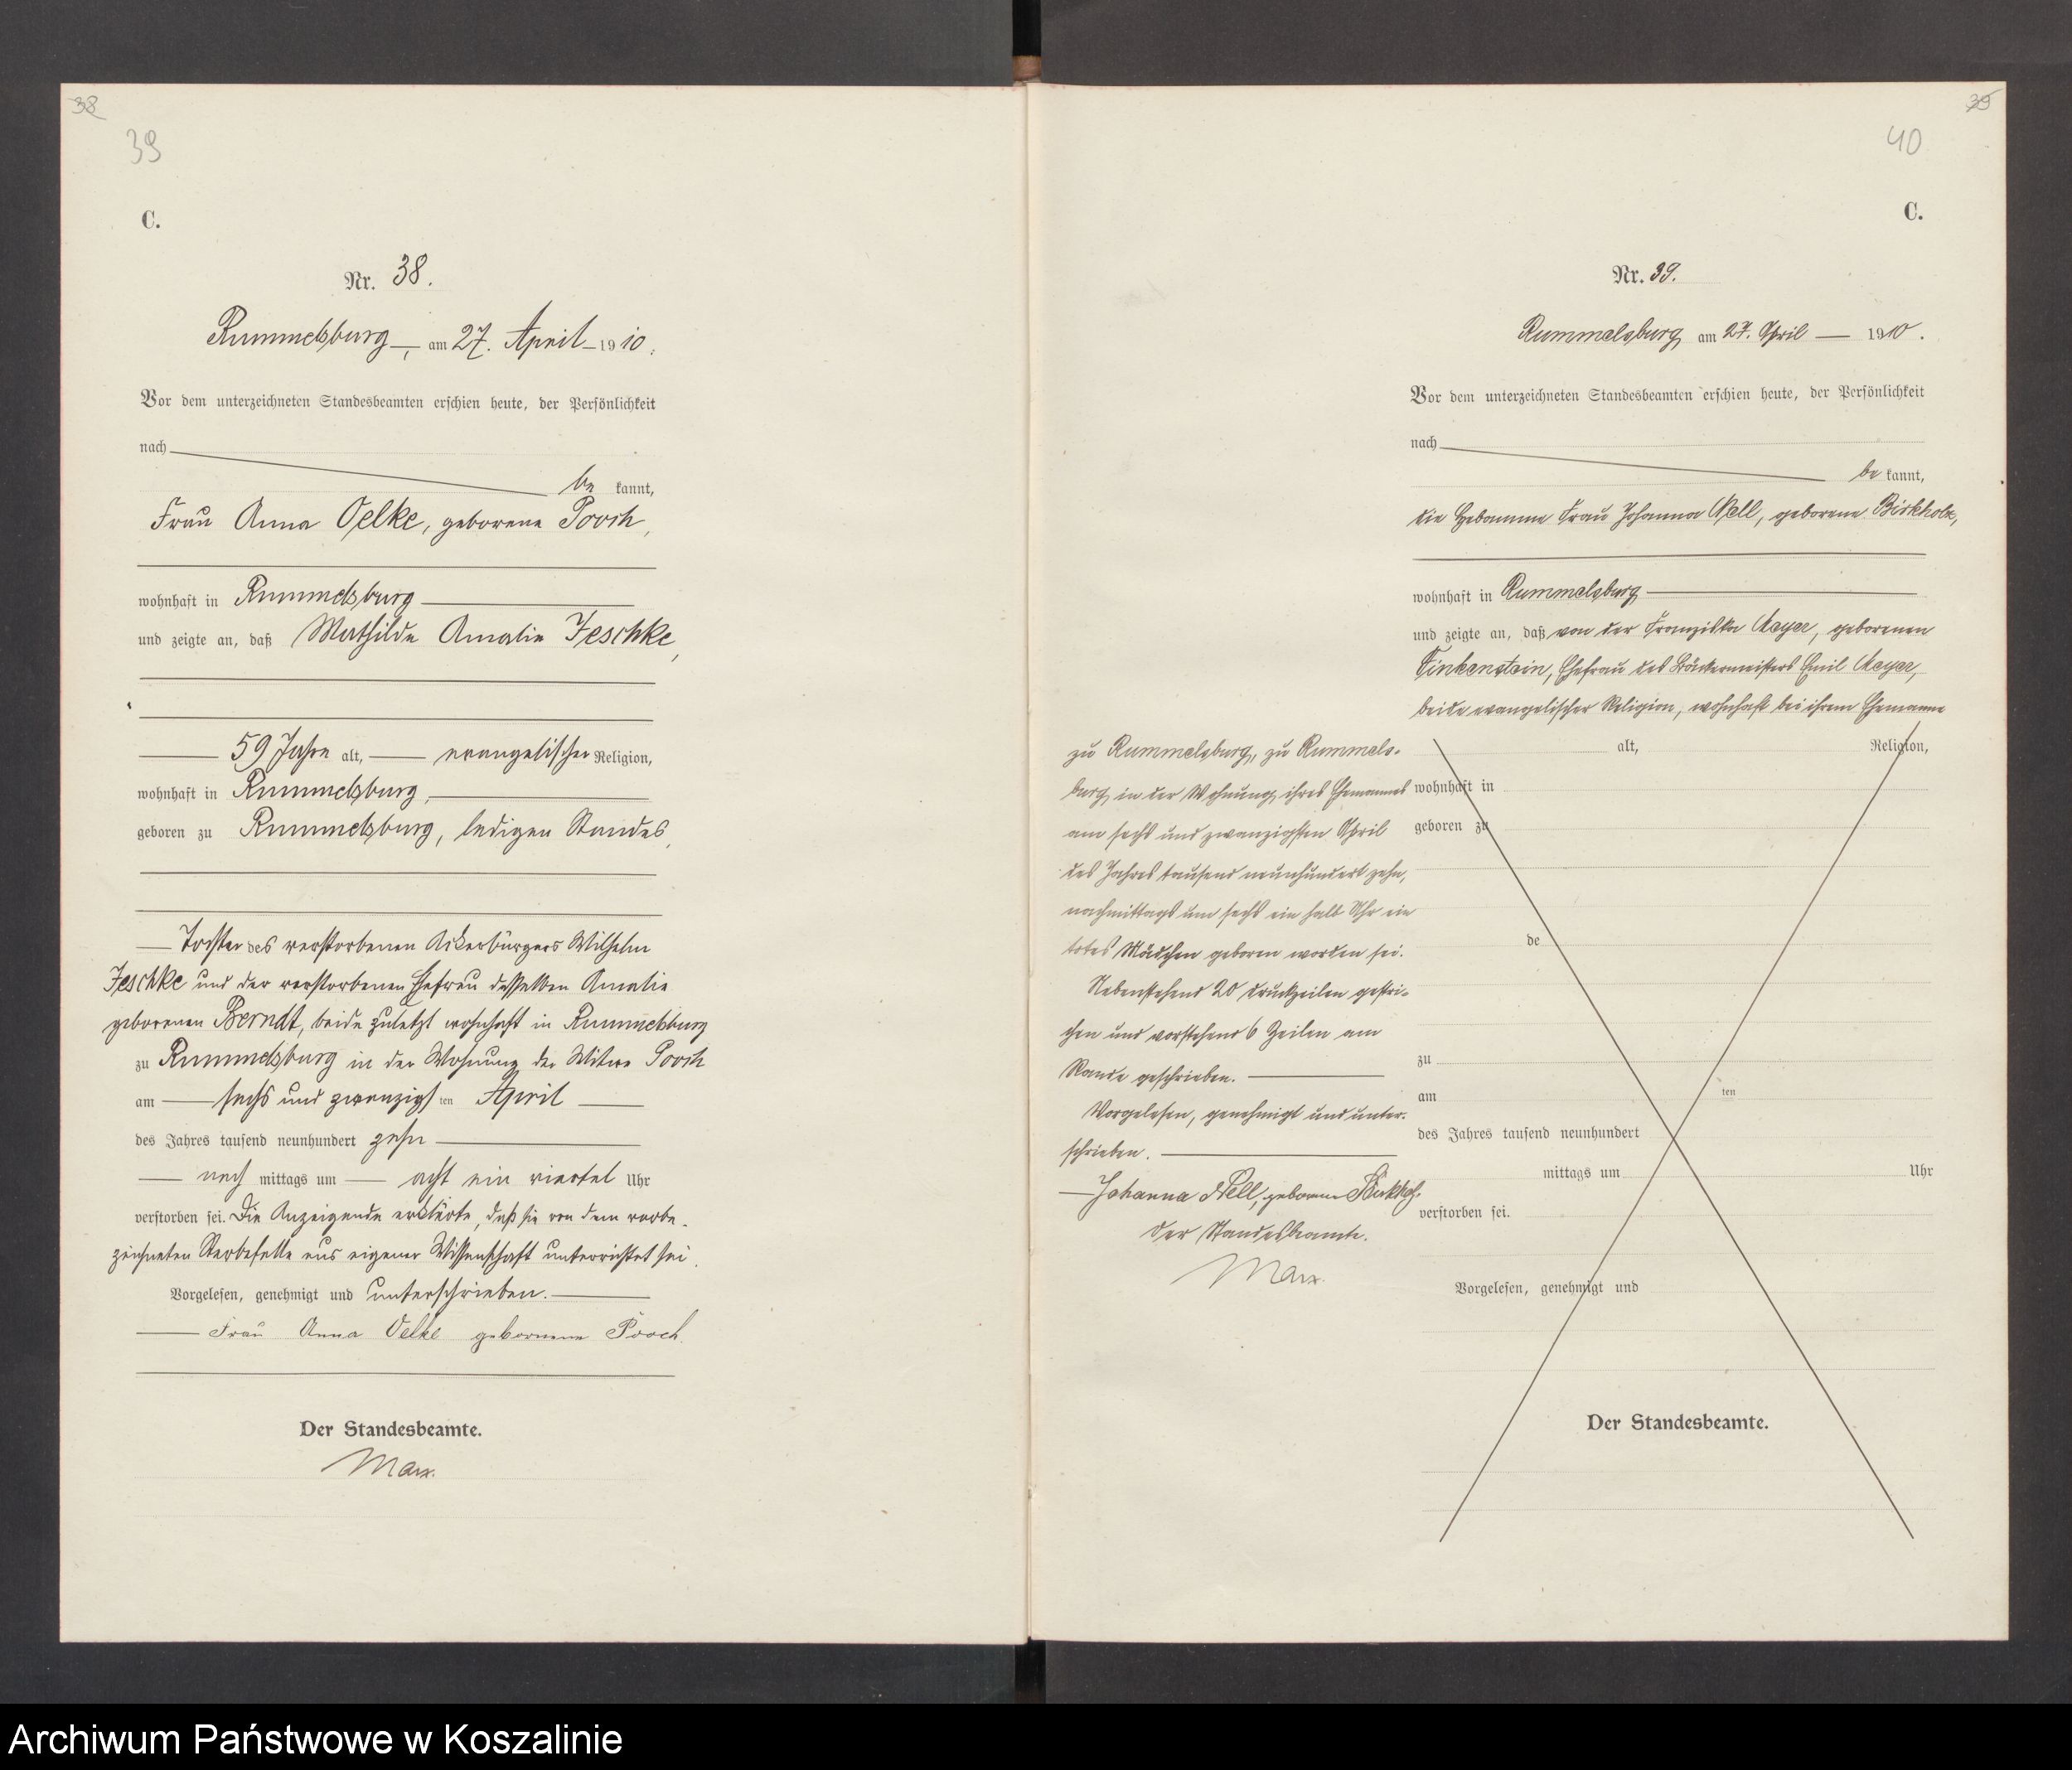 38
39
C.
Nr. 38.
Rummelsburg, am 27. April 1910.
Vor dem unterzeichneten Standesbeamten erschien heute, der Persönlichkeit
nach
be kannt,
Frau Anna Oelke, geborene Pooch,
wohnhaft in Rummelsburg
und zeigte an, daß Mathilde Amalie Jeschke,
59 Jahre alt, evangelischer Religion,
wohnhaft in Rummelsburg,
geboren zu Rummelsburg, ledigen Standes,
Tochter des verstorbenen Ackerbürgers Wilhelm
Jeschke und der verstorbenen Ehefrau desselben Amalie
geborenen Berndt, beide zuletzt wohnhaft in Rummelsburg
zu Rummelsburg in der Wohnung der Witwe Pooch
am sechs und zwanzigsten April
des Jahres tausend neunhundert zehn
nach mittags um acht ein viertel Uhr
verstorben sei. Die Anzeigende erklärte, daß sie von dem vorbe-
zeichneten Sterbefalle aus eigener Wissenschaft unterrichtet sei.
Vorgelesen, genehmigt und unterschrieben.
Frau Anna Oelke geborene Pooch.
Der Standesbeamte.
Marx.
39
40
C.
Nr. 39.
Rummelsburg am 27. April 1910.
Vor dem unterzeichneten Standesbeamten erschien heute, der Persönlichkeit
nach
be kannt,
die Hebamme Frau Johanna Nell, geborene Birkholz,
wohnhaft in Rummelsburg
und zeigte an, daß von der Franziska Meyer, geborenen
Finkenstein, Ehefrau des Bäckermeisters Emil Meyer,
beide evangelischer Religion, wohnhaft bei ihrem Ehemanne
zu Rummelsburg, zu Rummels-
burg in der Wohnung ihres Ehemannes
am sechs und zwanzigsten April
des Jahres tausend neunhundert zehn,
nachmittags um sechs ein halb Uhr ein
totes Mädchen geboren worden sei.
Nebenstehend 20 Druckzeilen gestri-
chen und vorstehend 6 Zeilen am
Rande geschrieben.
Vorgelesen, genehmigt und unter-
schrieben.
Johanna Nell, geborene Birkholz.
Der Standesbeamte.
Marx.
alt, Religion,
wohnhaft in
geboren zu
de
zu
am ten
des Jahres tausend neunhundert
mittags um Uhr
verstorben sei.
Vorgelesen, genehmigt und
Der Standesbeamte.
Archiwum Państwowe w Koszalinie